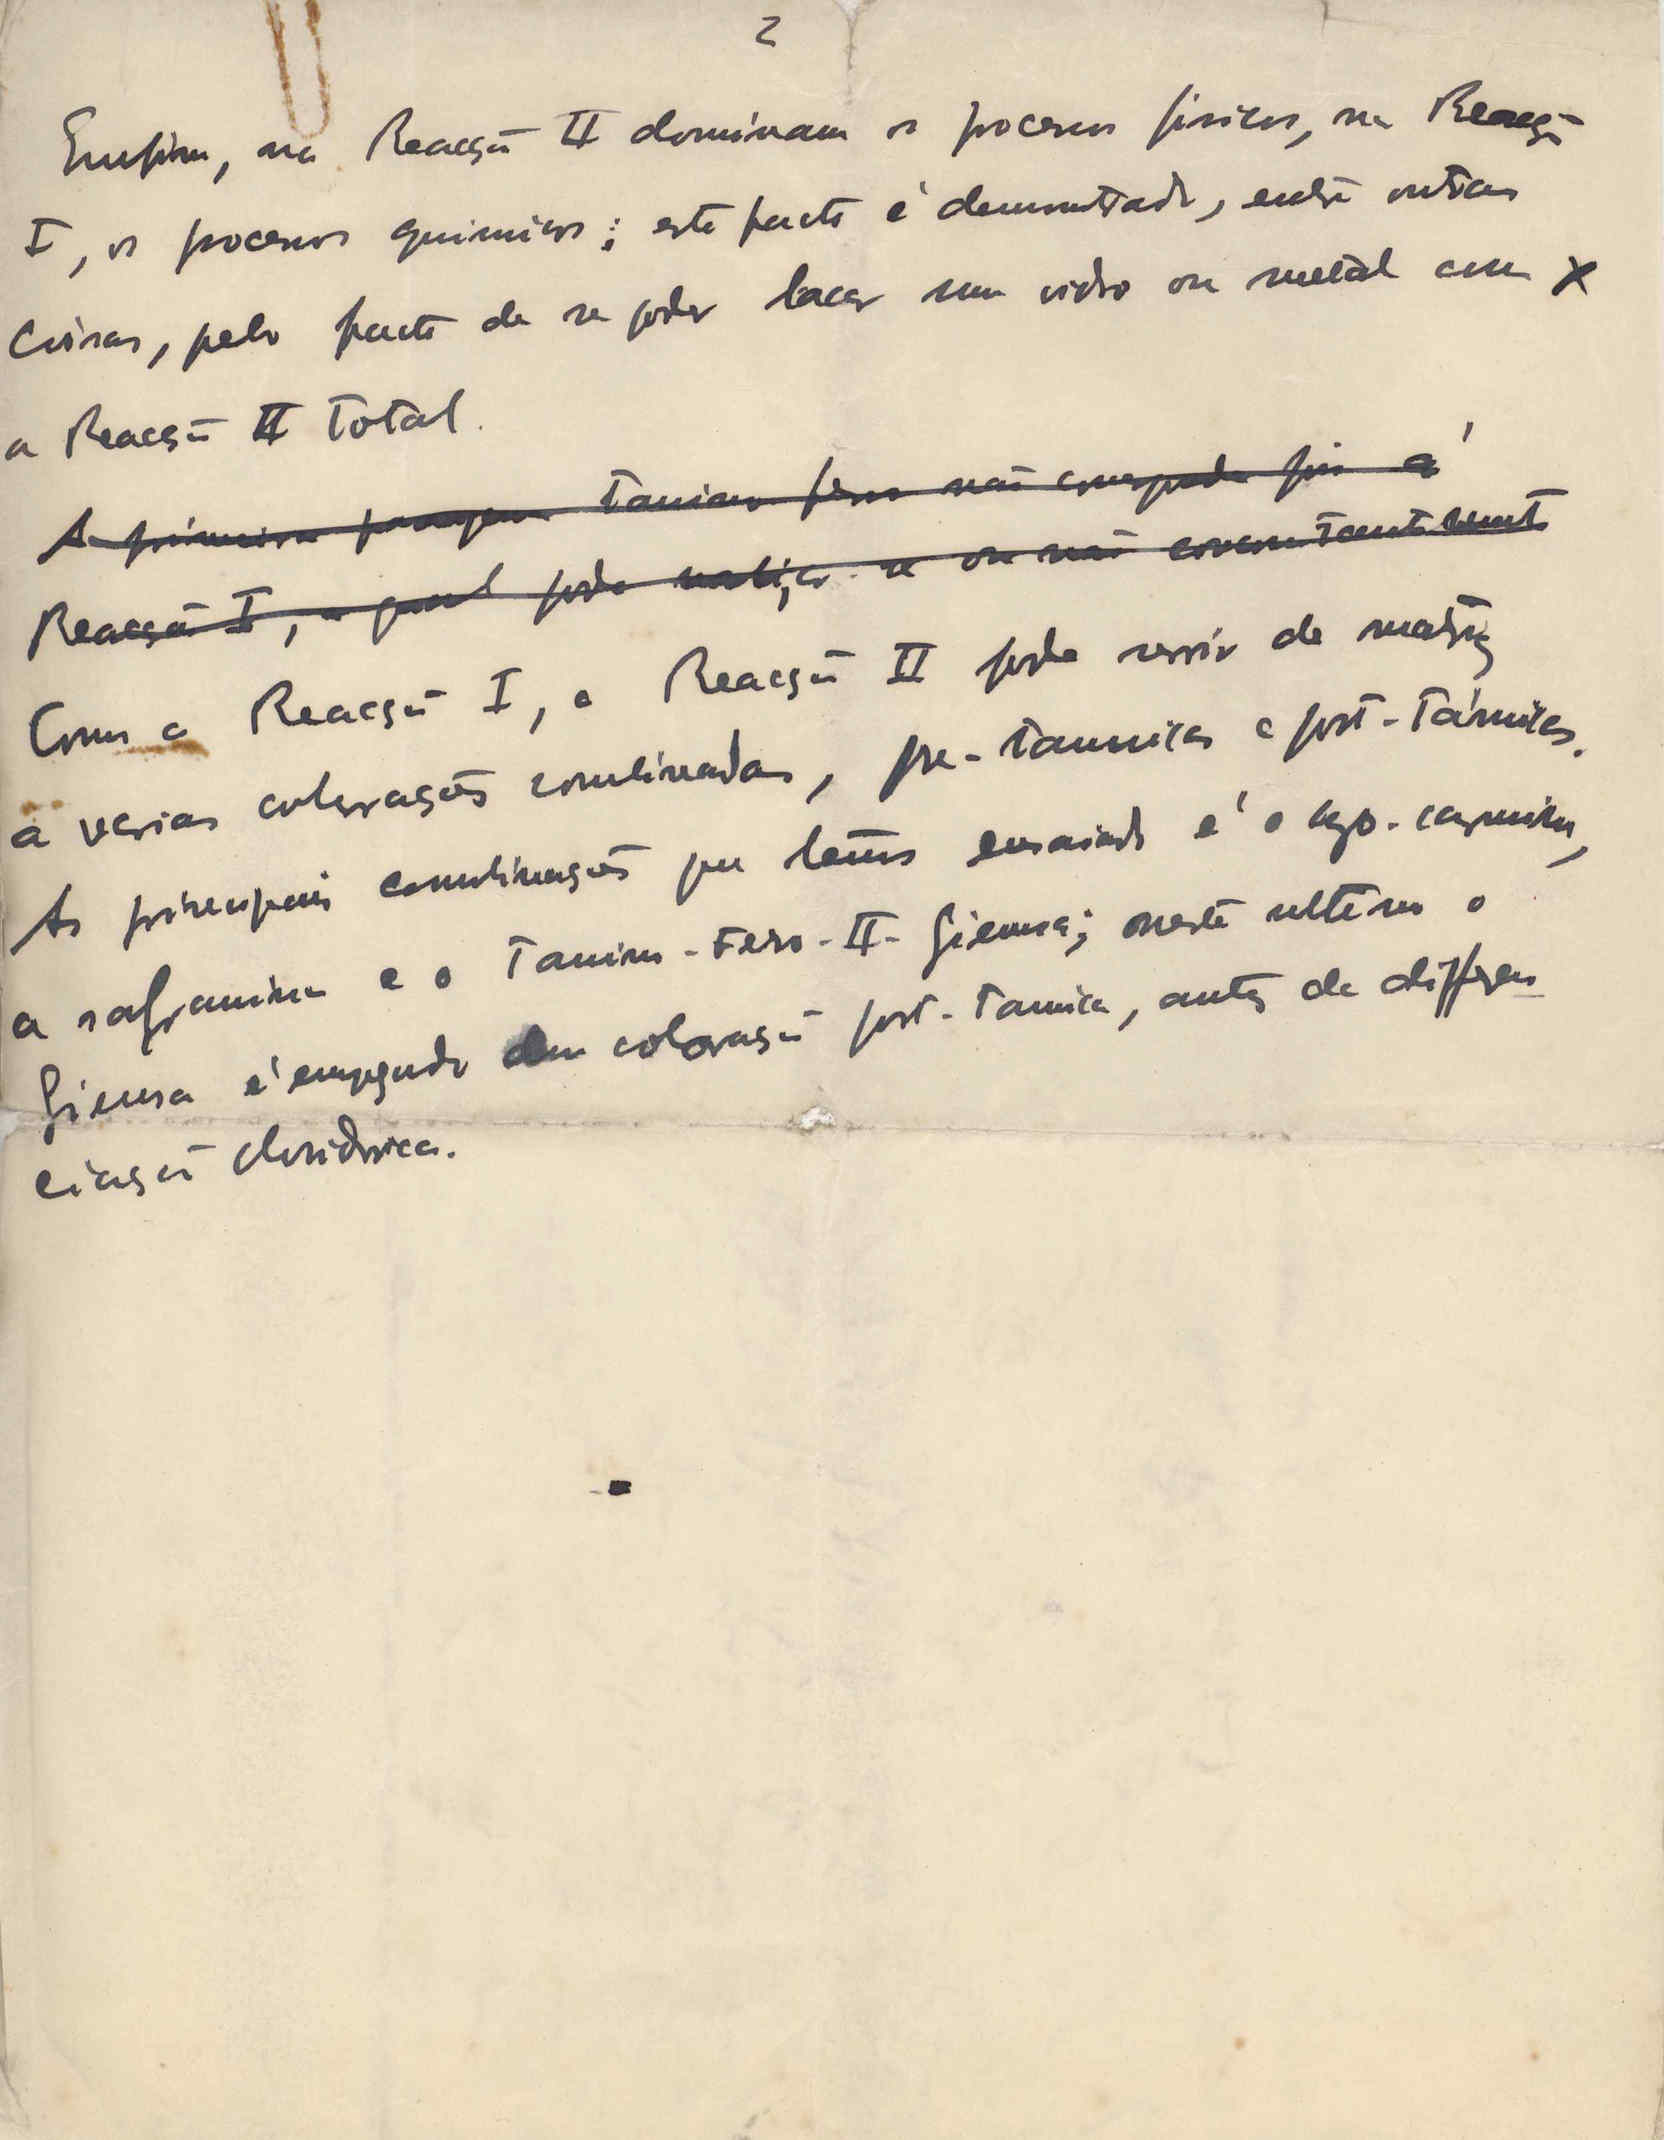 2
Enfim, na Reacção II dominam os processos fisicos, na Reacção
I, os processos quimicos; este facto é demonstrado, entre outras
coisas, pelo facto de se poder lacar um vidro ou metal com X
a Reacção II Total.
A primeira passagem Tanino ferro não corresponde pois á
Reacção I, a qual pode realizar-se ou não concomitantemente
Como a Reacção I, a Reacção II pode servir de matriz
a varias colorações combinadas, pre-tannicas e post-tánnicas.
As principais combinações que temos ensaiado é o -carmim,
a safranina e o Tanino-Ferro-II-Giemsa; neste ultimo o
Giemsa é empregado em coloração post-tannica, antes da differen
ciação cloridrica.